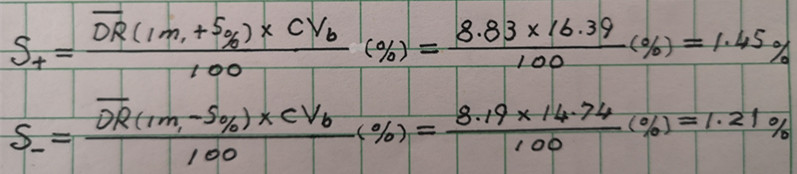 S₊ = D̅R̅(1m, +5%) × CV_b / 100 (%) = 8.83 × 16.39 / 100 (%) = 1.45%
S₋ = D̅R̅(1m, -5%) × CV_b / 100 (%) = 8.19 × 14.74 / 100 (%) = 1.21%